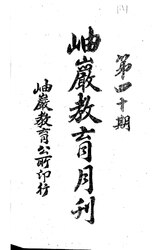 第四十期
岫巖教育月刊
岫巖教育公所印行